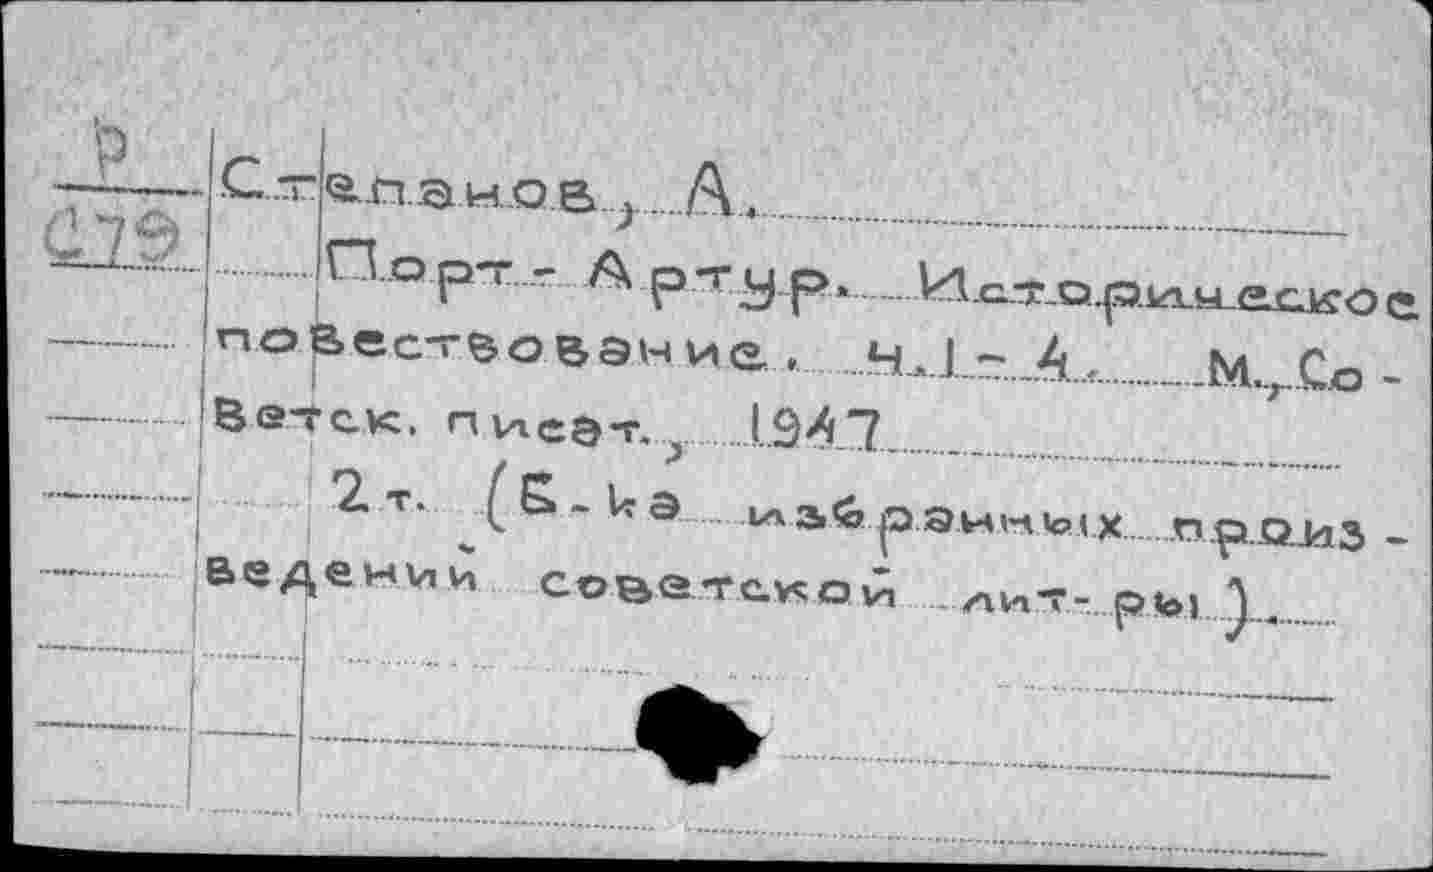 Р
С79
Степанов, А.
Порт-Артур. Историческое
повествование. Ч.1-4. М., Со-
ветск. писат., 1947
2 т. (Б-ка избранных произ-
ведений советской лит-ры).